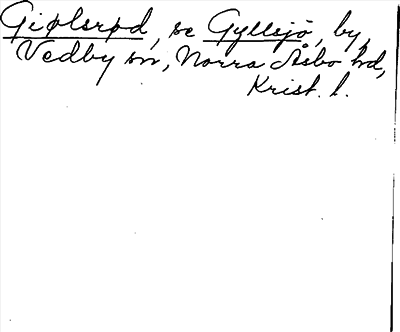 Giølsrød, se Gyllsjö, by,
Vedby sn, Norra Åsbo hd,
Krist. l.